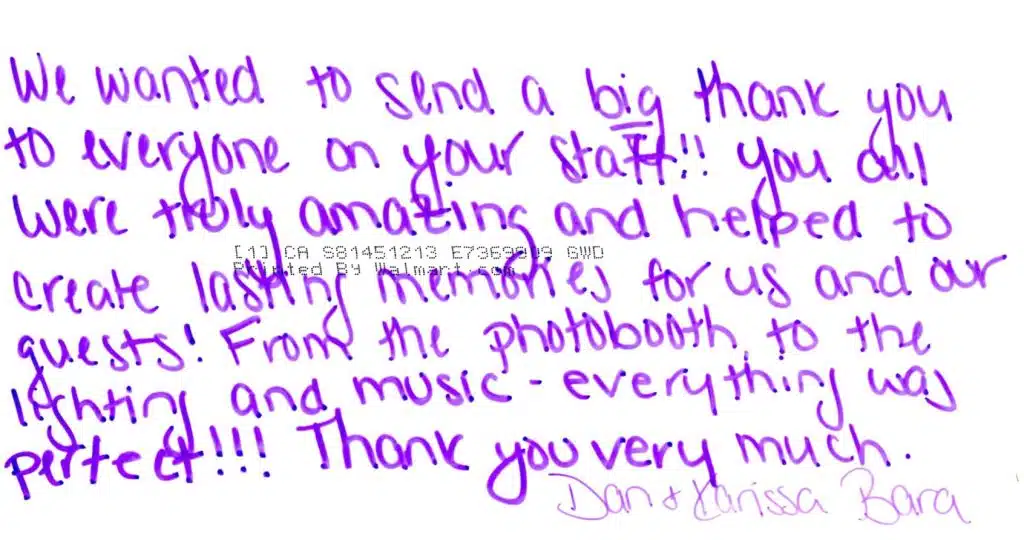 We wanted to send a big thank you
to everyone on your staff!! you all
were truly amazing and helped to
[1] CA S81451213 E7369809 GWD
Printed By Walmart.com
create lasting memories for us and our
guests! From the photobooth, to the
lighting and music - everything was
perfect!!! Thank you very much.
Dan + Karissa Bara